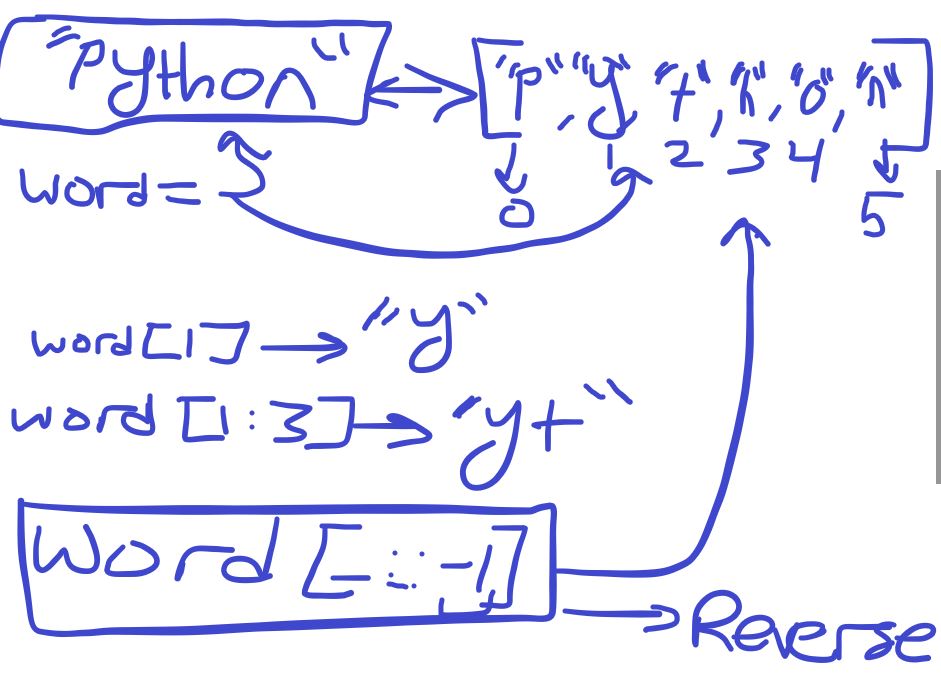 "Python" ["P","y","t","h","o","n"]
0 1 2 3 4 5
word=
word[1] "y"
word[1:3] "yt"
word[::-1]
Reverse